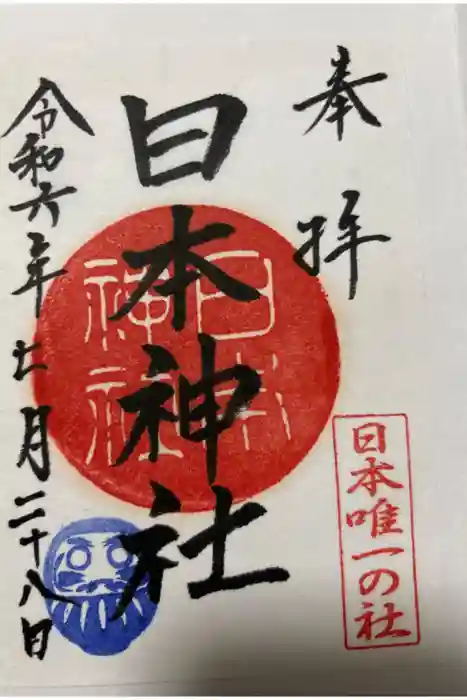 奉拝
日本神社
日本神社
日本唯一の社
令和六年七月二十八日